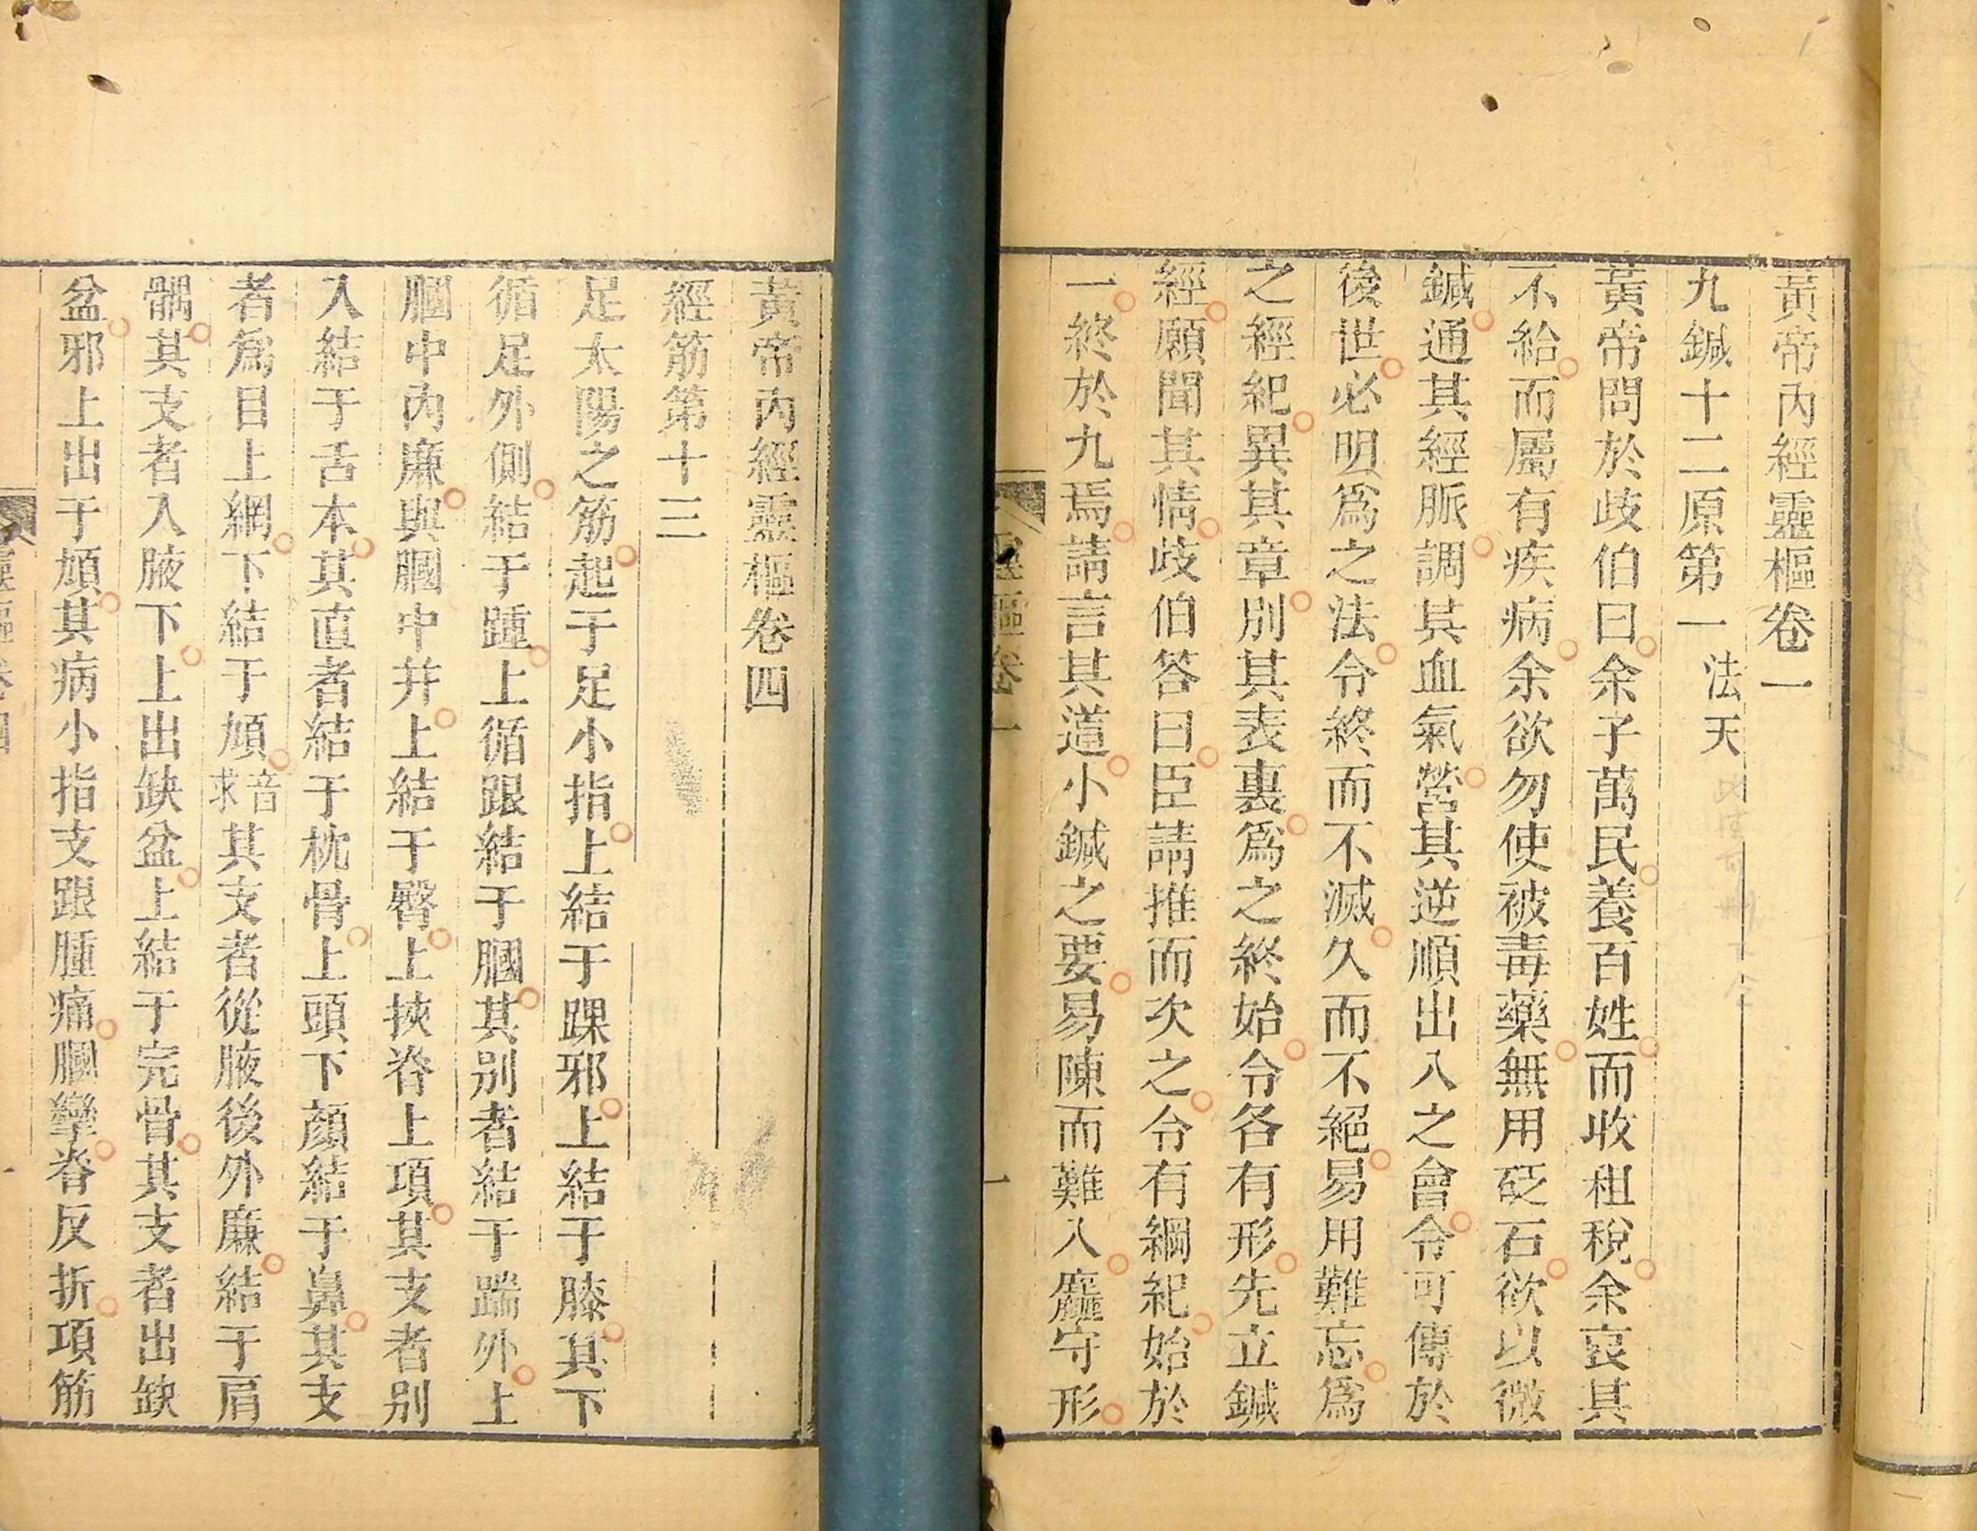 黃帝內經靈樞卷一
九鍼十二原第一 法天
黃帝問於歧伯曰余子萬民養百姓而收租稅余哀其
不給而屬有疾病余欲勿使被毒藥無用砭石欲以微
鍼通其經脈調其血氣營其逆順出入之會令可傳於
後世必明爲之法令終而不滅久而不絕易用難忘爲
之經紀異其章別其表裏爲之終始令各有形先立鍼
經願聞其情歧伯答曰臣請推而次之令有綱紀始於
一終於九焉請言其道小鍼之要易陳而難入麤守形
靈樞卷一
一
黃帝內經靈樞卷四
經筋第十三
足太陽之筋起于足小指上結于踝邪上結于膝其下
循足外側結于踵上循跟結于膕其别者結于踹外上
膕中內廉與膕中并上結于臀上挾脊上項其支者别
入結于舌本其直者結于枕骨上頭下顏結于鼻其支
者爲目上網下結于頄音求其支者從腋後外廉結于肩
髃其支者入腋下上出缺盆上結于完骨其支者出缺
盆邪上出于頄其病小指支跟腫痛膕攣脊反折項筋
靈樞卷四